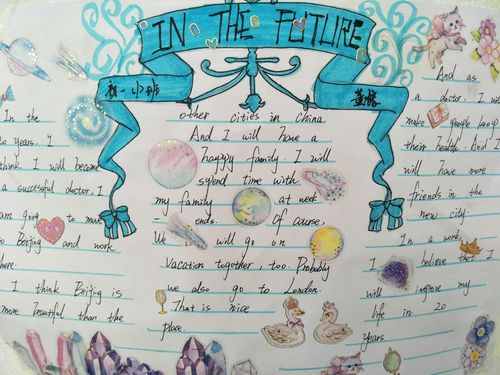 IN THE FUTURE
初一小班
In the
I
think I will become
a successful doctor. I
am going to move
to Beijing and work
here.
I think Beijing is
more beautiful than the
other cities in China.
And I will have a
happy family. I will
spend time with
my family at week
ends. Of course,
We will go on
vacation together, too. Probably
we also go to London.
That is nice
place.
And as
a doctor, I will
make people
their health. And I
will have more
friends in the
new city.
In a work,
I believe that I
will improve my
life in 20
years.